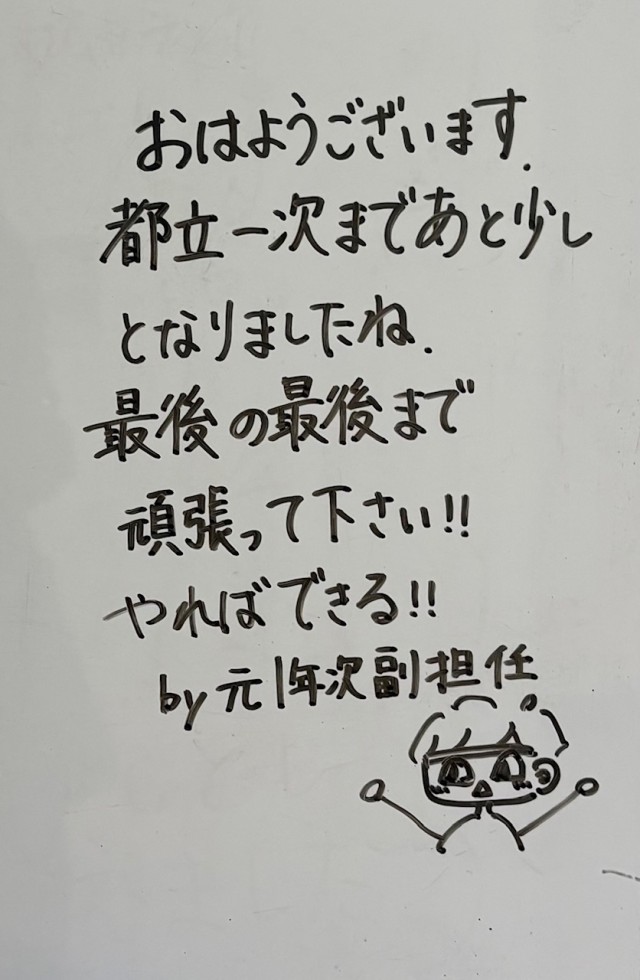 おはようございます.
都立一次まであと少し
となりましたね.
最後の最後まで
頑張って下さい!!
やればできる!!
by 元1年次副担任